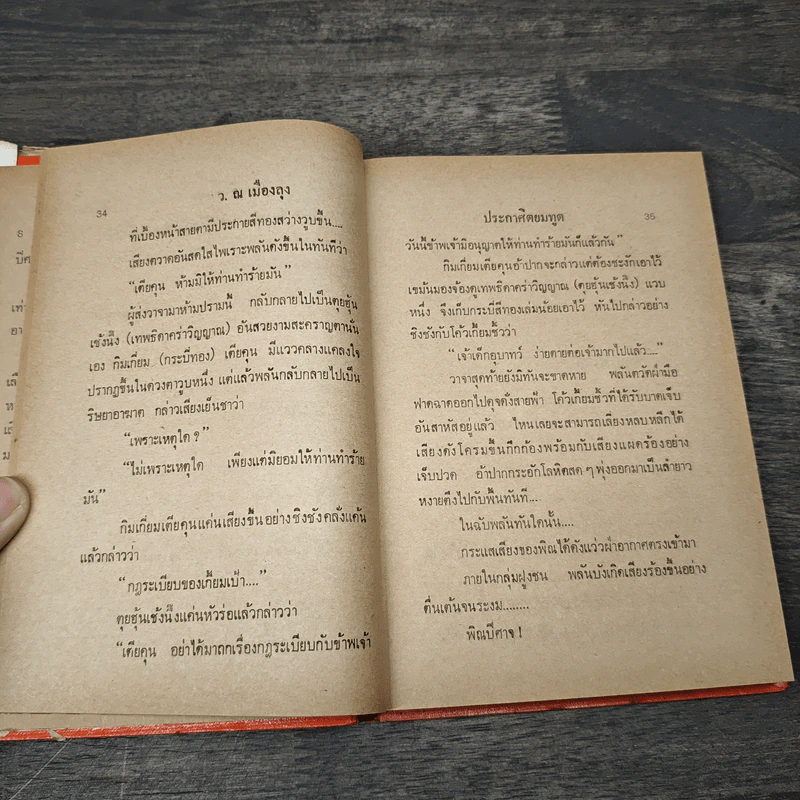 34
ว. ณ เมืองลุง
ที่เบื้องหน้าสายตามีประกายสีทองสว่างวูบขึ้น....
เสียงตวาดอันสดใสไพเราะพลันดังขึ้นในทันทีว่า
“เตียคุน ห้ามมิให้ท่านทำร้ายมัน”
ผู้ส่งวาจามาห้ามปรามนี้ กลับกลายไปเป็นตุยฮุ้น
เช้งนึ้ง (เทพธิดาคร่าวิญญาณ) อันสวยงามสะคราญตานั่น
เอง กิมเกี่ยม (กระบี่ทอง) เตียคุน มีแววคลางแคลงใจ
ปรากฏขึ้นในดวงตาวูบหนึ่ง แต่แล้วพลันกลับกลายไปเป็น
ริษยาอาฆาต กล่าวเสียงเย็นชาว่า
“เพราะเหตุใด ?”
“ไม่เพราะเหตุใด เพียงแต่มิยอมให้ท่านทำร้าย
มัน”
กิมเกี่ยมเตียคุนแค่นเสียงขึ้นอย่างชิงชังคลั่งแค้น
แล้วกล่าวว่า
“กฎระเบียบของเกี้ยมเป้า....”
ตุยฮุ้นเช้งนึ้งแค่นหัวร่อแล้วกล่าวว่า
“เตียคุน อย่าได้มาถกเรื่องกฎระเบียบกับข้าพเจ้า
ประกาศิตยมทูต
35
วันนี้ข้าพเจ้ามิอนุญาตให้ท่านทำร้ายมันก็แล้วกัน”
กิมเกี่ยมเตียคุนอ้าปากจะกล่าวแต่ต้องชะงักเอาไว้
เขม้นมองจ้องดูเทพธิดาคร่าวิญญาณ (ตุยฮุ้นเช้งนึ้ง) แวบ
หนึ่ง จึงเก็บกระบี่สีทองเล่มน้อยเอาไว้ หันไปกล่าวอย่าง
ชิงชังกับโค้วเกี้ยมชิ้วว่า
“เจ้าเด็กอุบาทว์ ง่ายดายต่อเจ้ามากไปแล้ว....”
วาจาสุดท้ายยังมิทันจะขาดหาย พลันตวัดฝ่ามือ
ฟาดฉาดออกไปดุจดั่งสายฟ้า โค้วเกี้ยมชิ้วที่ได้รับบาดเจ็บ
อันสาหัสอยู่แล้ว ไหนเลยจะสามารถเลี่ยงหลบหลีกได้
เสียงดังโครมขึ้นกึกก้องพร้อมกับเสียงแผดร้องอย่าง
เจ็บปวด อ้าปากกระอักโลหิตสด ๆ พุ่งออกมาเป็นลำยาว
หงายตึงไปกับพื้นทันที....
ในฉับพลันทันใดนั้น....
กระแสเสียงของพิณได้ดังแว่วฝ่าอากาศตรงเข้ามา
ภายในกลุ่มฝูงชน พลันบังเกิดเสียงร้องขึ้นอย่าง
ตื่นเต้นจนระงม........
พิณปีศาจ !